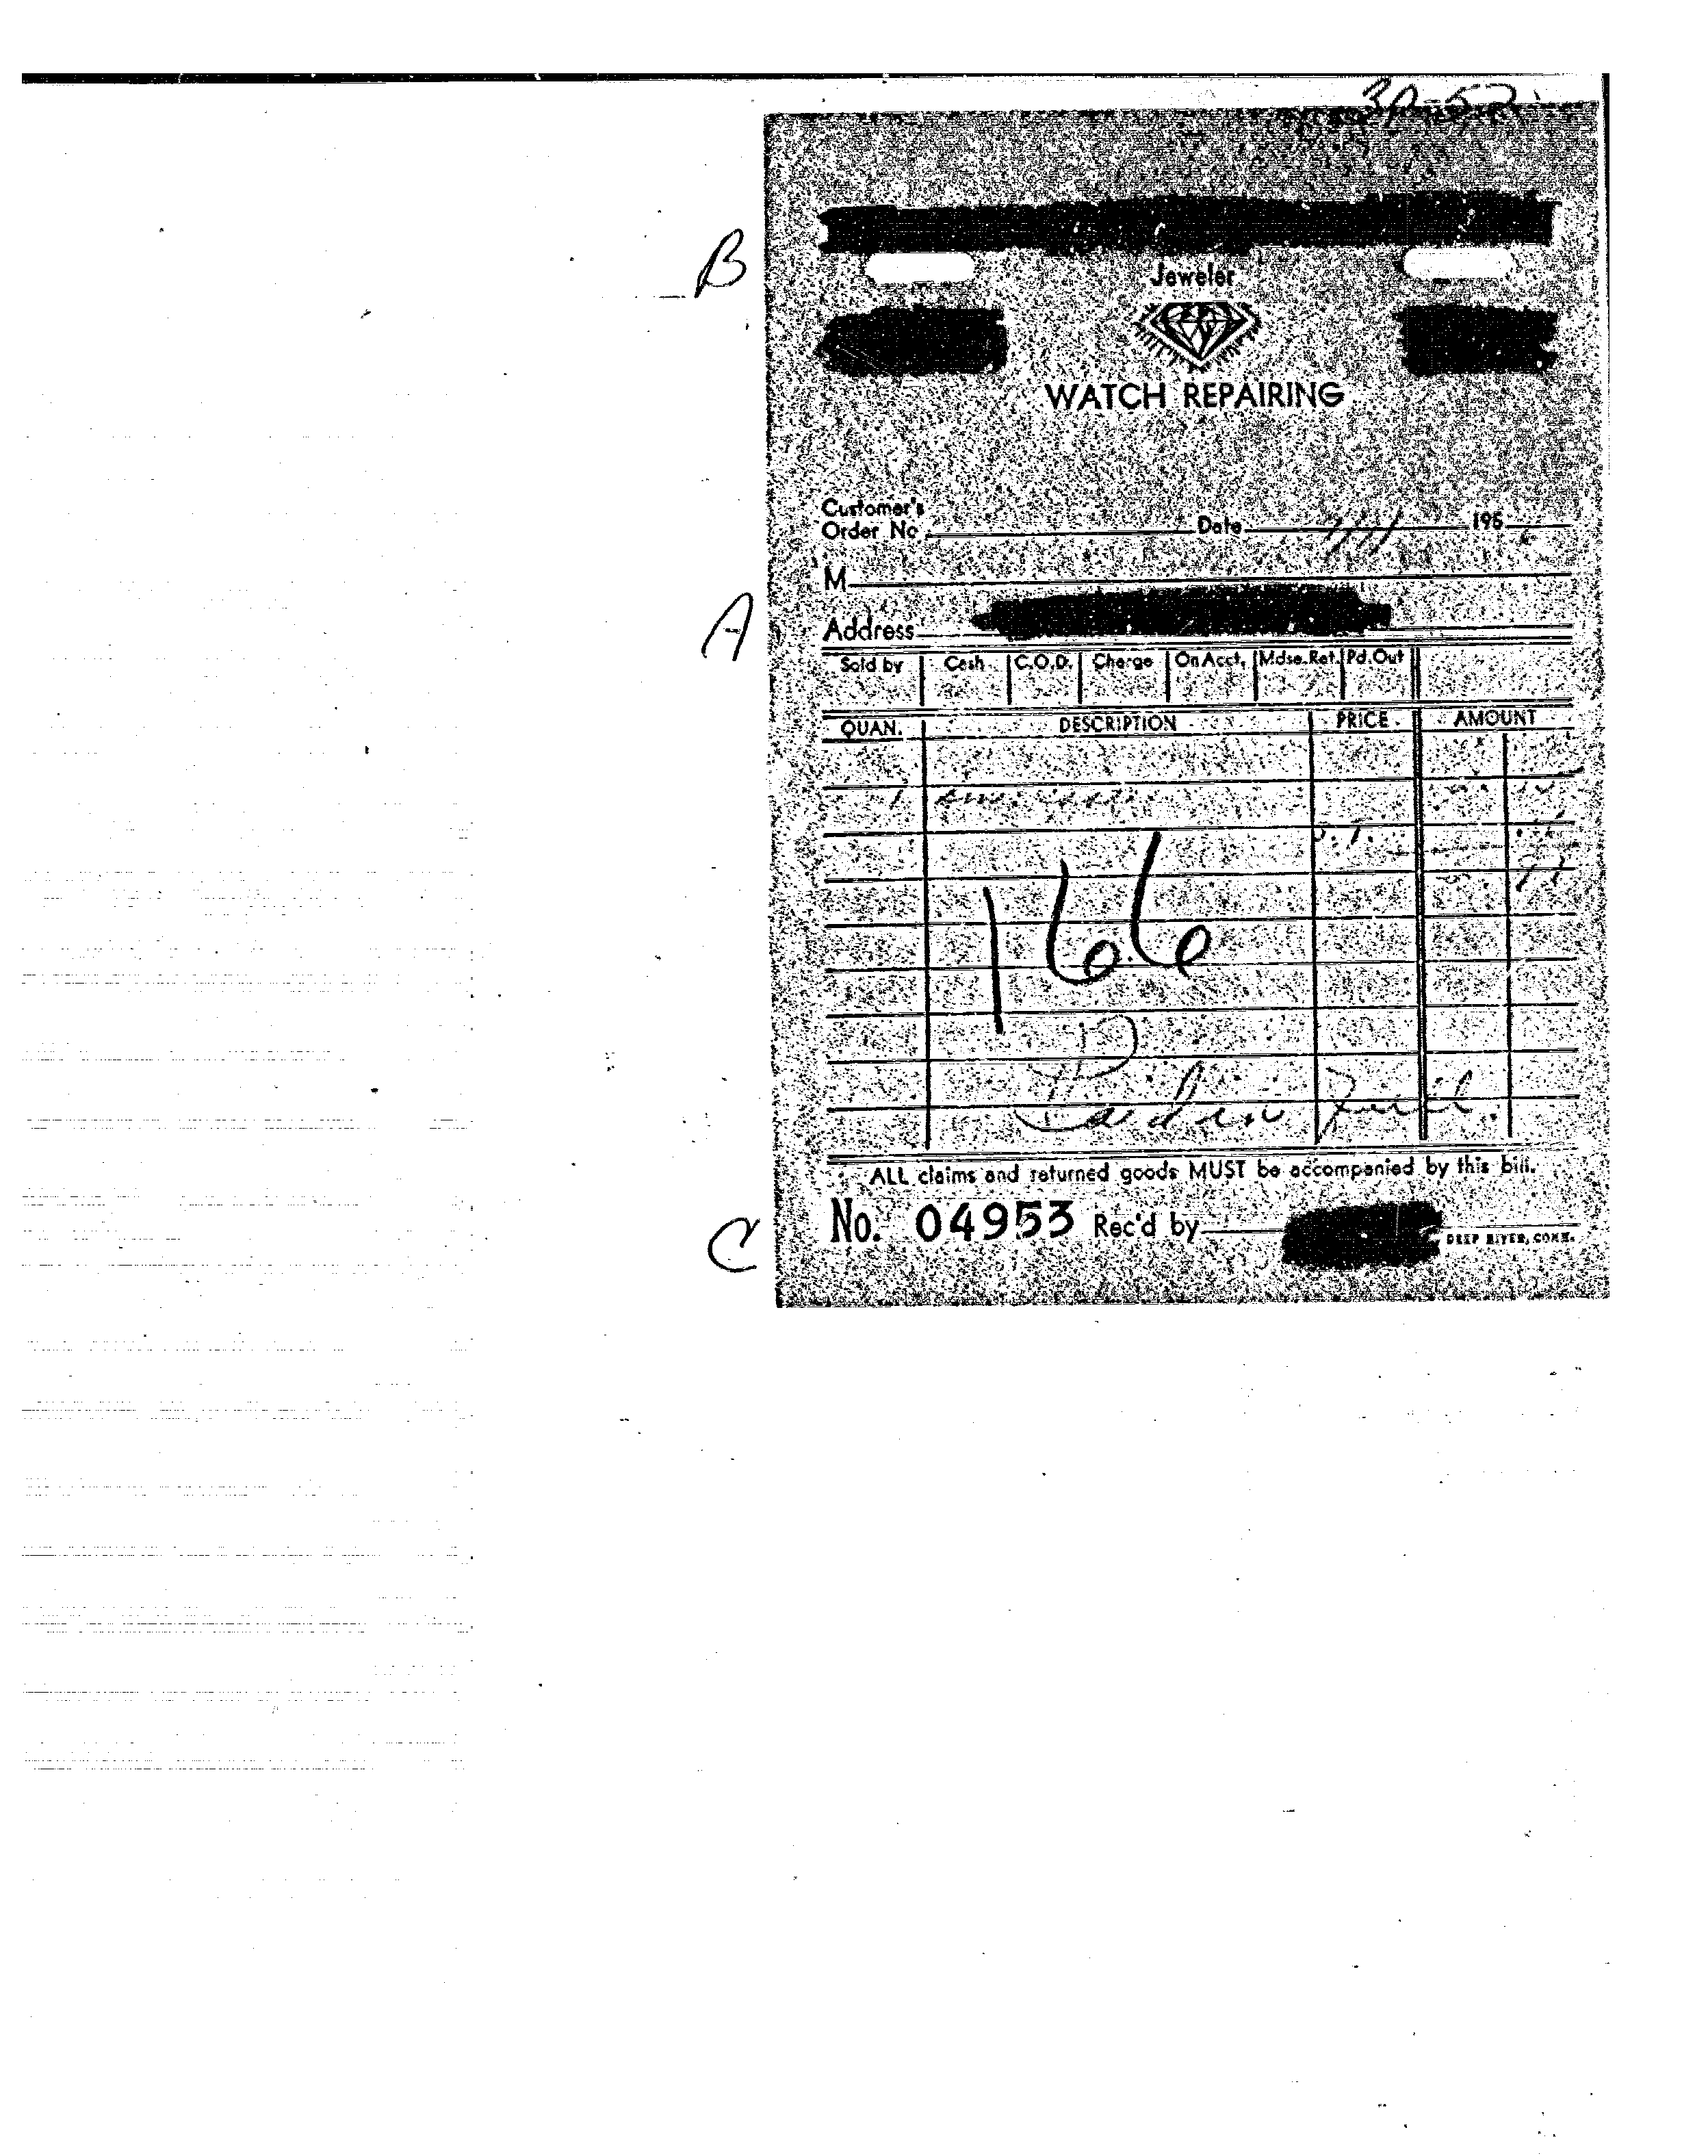 B
Jeweler
WATCH REPAIRING
Customer's
Order No. Date 7/11 195
M
A
Address
Sold by Cash C.O.D. Charge On Acct. Mdse. Ret. Pd. Out
QUAN. DESCRIPTION PRICE AMOUNT
1
166
Paid in Full.
ALL claims and returned goods MUST be accompanied by this bill.
C
No. 04953 Rec'd by
DEEP RIVER, CONN.